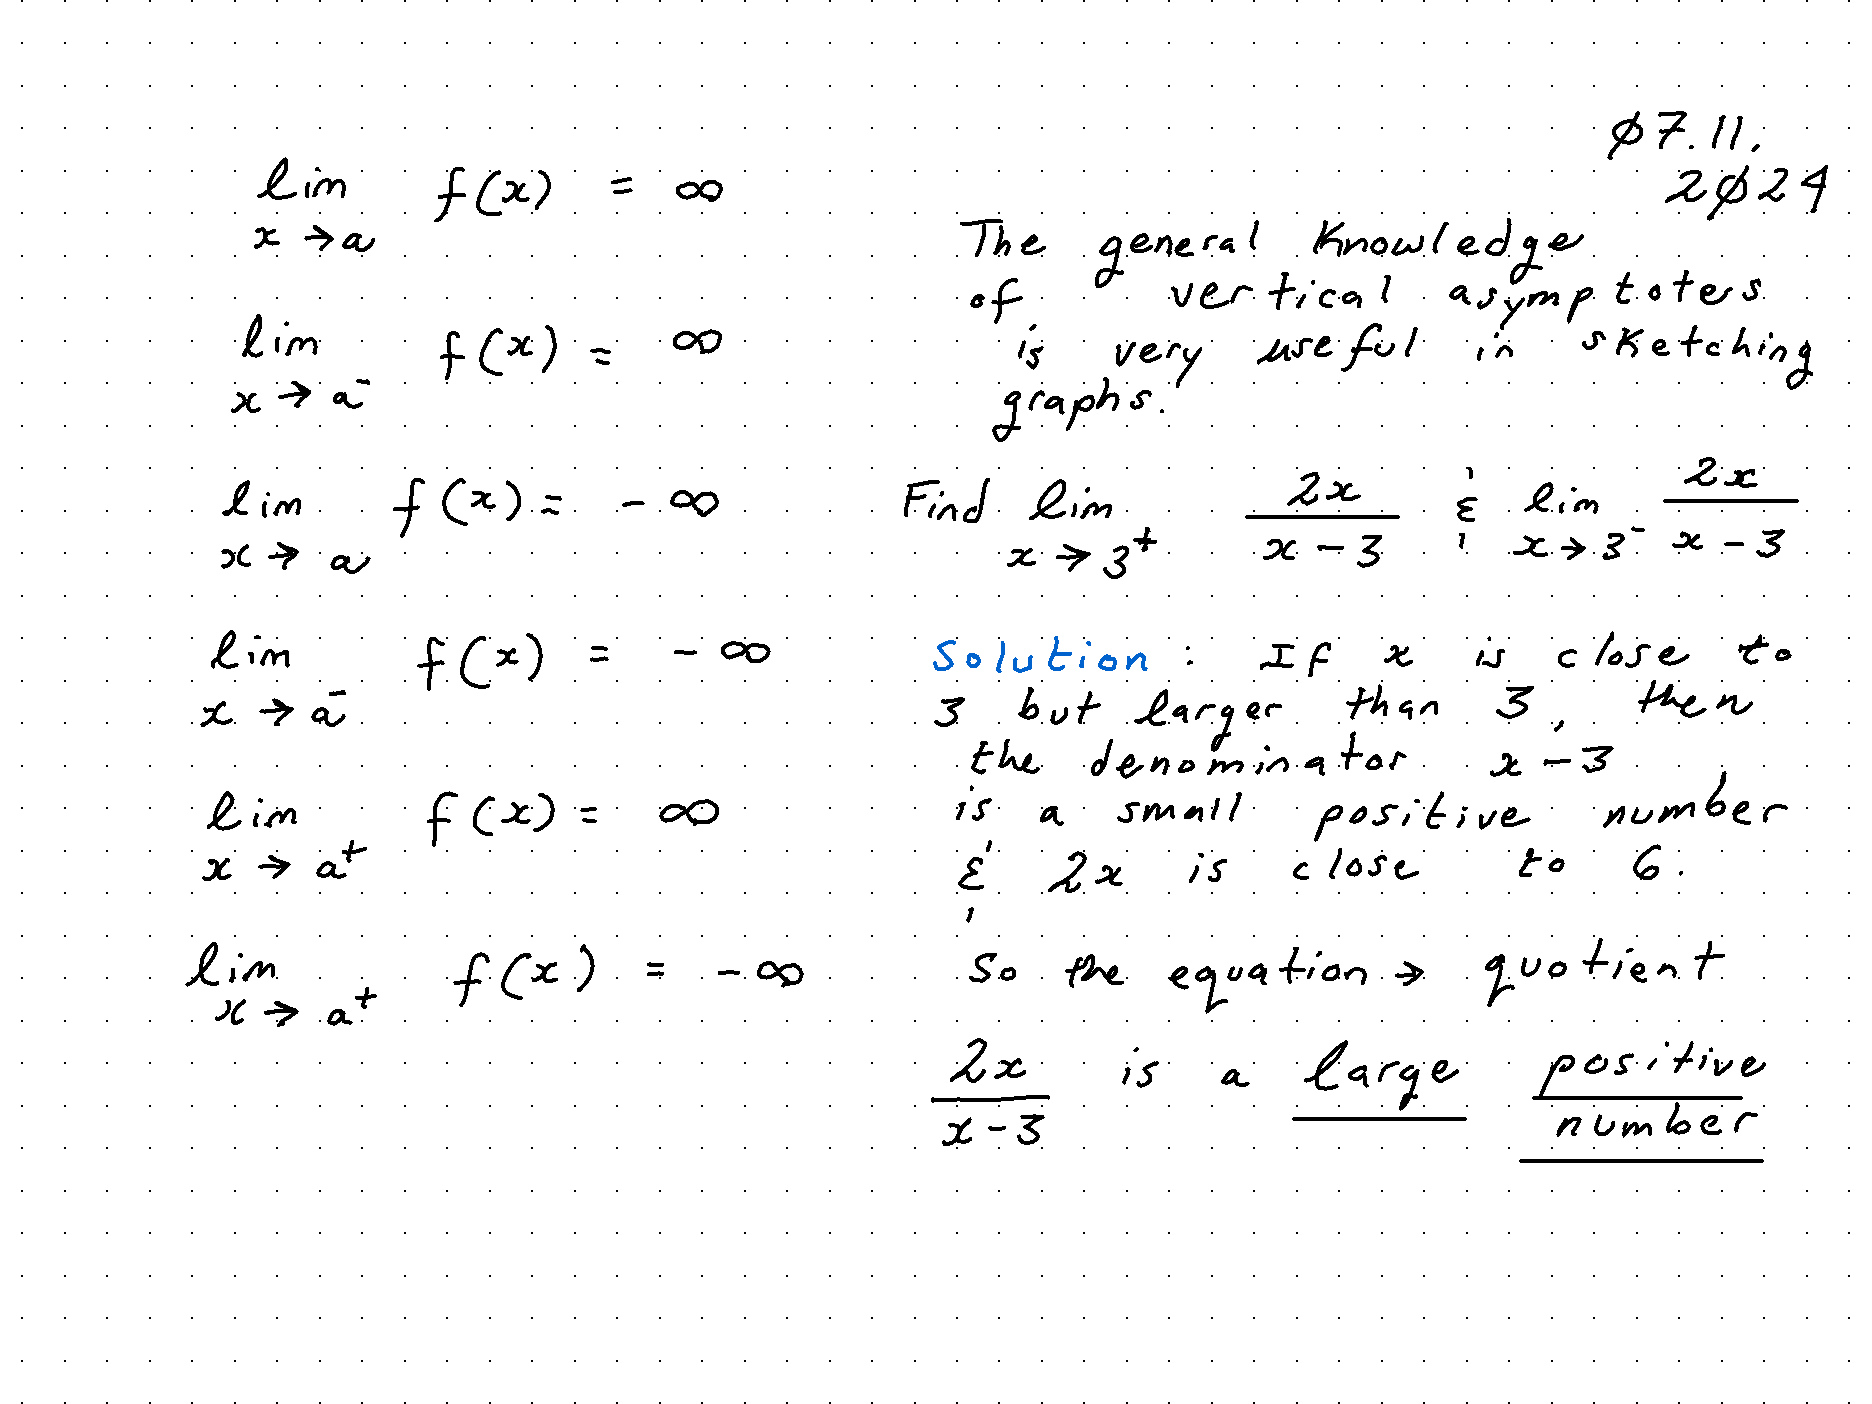 lim f(x) = ∞
x → a
lim f(x) = ∞
x → a⁻
lim f(x) = - ∞
x → a
lim f(x) = - ∞
x → a⁻
lim f(x) = ∞
x → a⁺
lim f(x) = - ∞
x → a⁺
Ø7.11.
2Ø24
The general knowledge
of vertical asymptoters
is very useful in sketching
graphs.
Find lim 2x/(x - 3) & lim 2x/(x - 3)
x → 3⁺ x → 3⁻
Solution : If x is close to
3 but larger than 3, then
the denominator x - 3
is a small positive number
& 2x is close to 6.
So the equation → quotient
2x/(x - 3) is a large positive
number